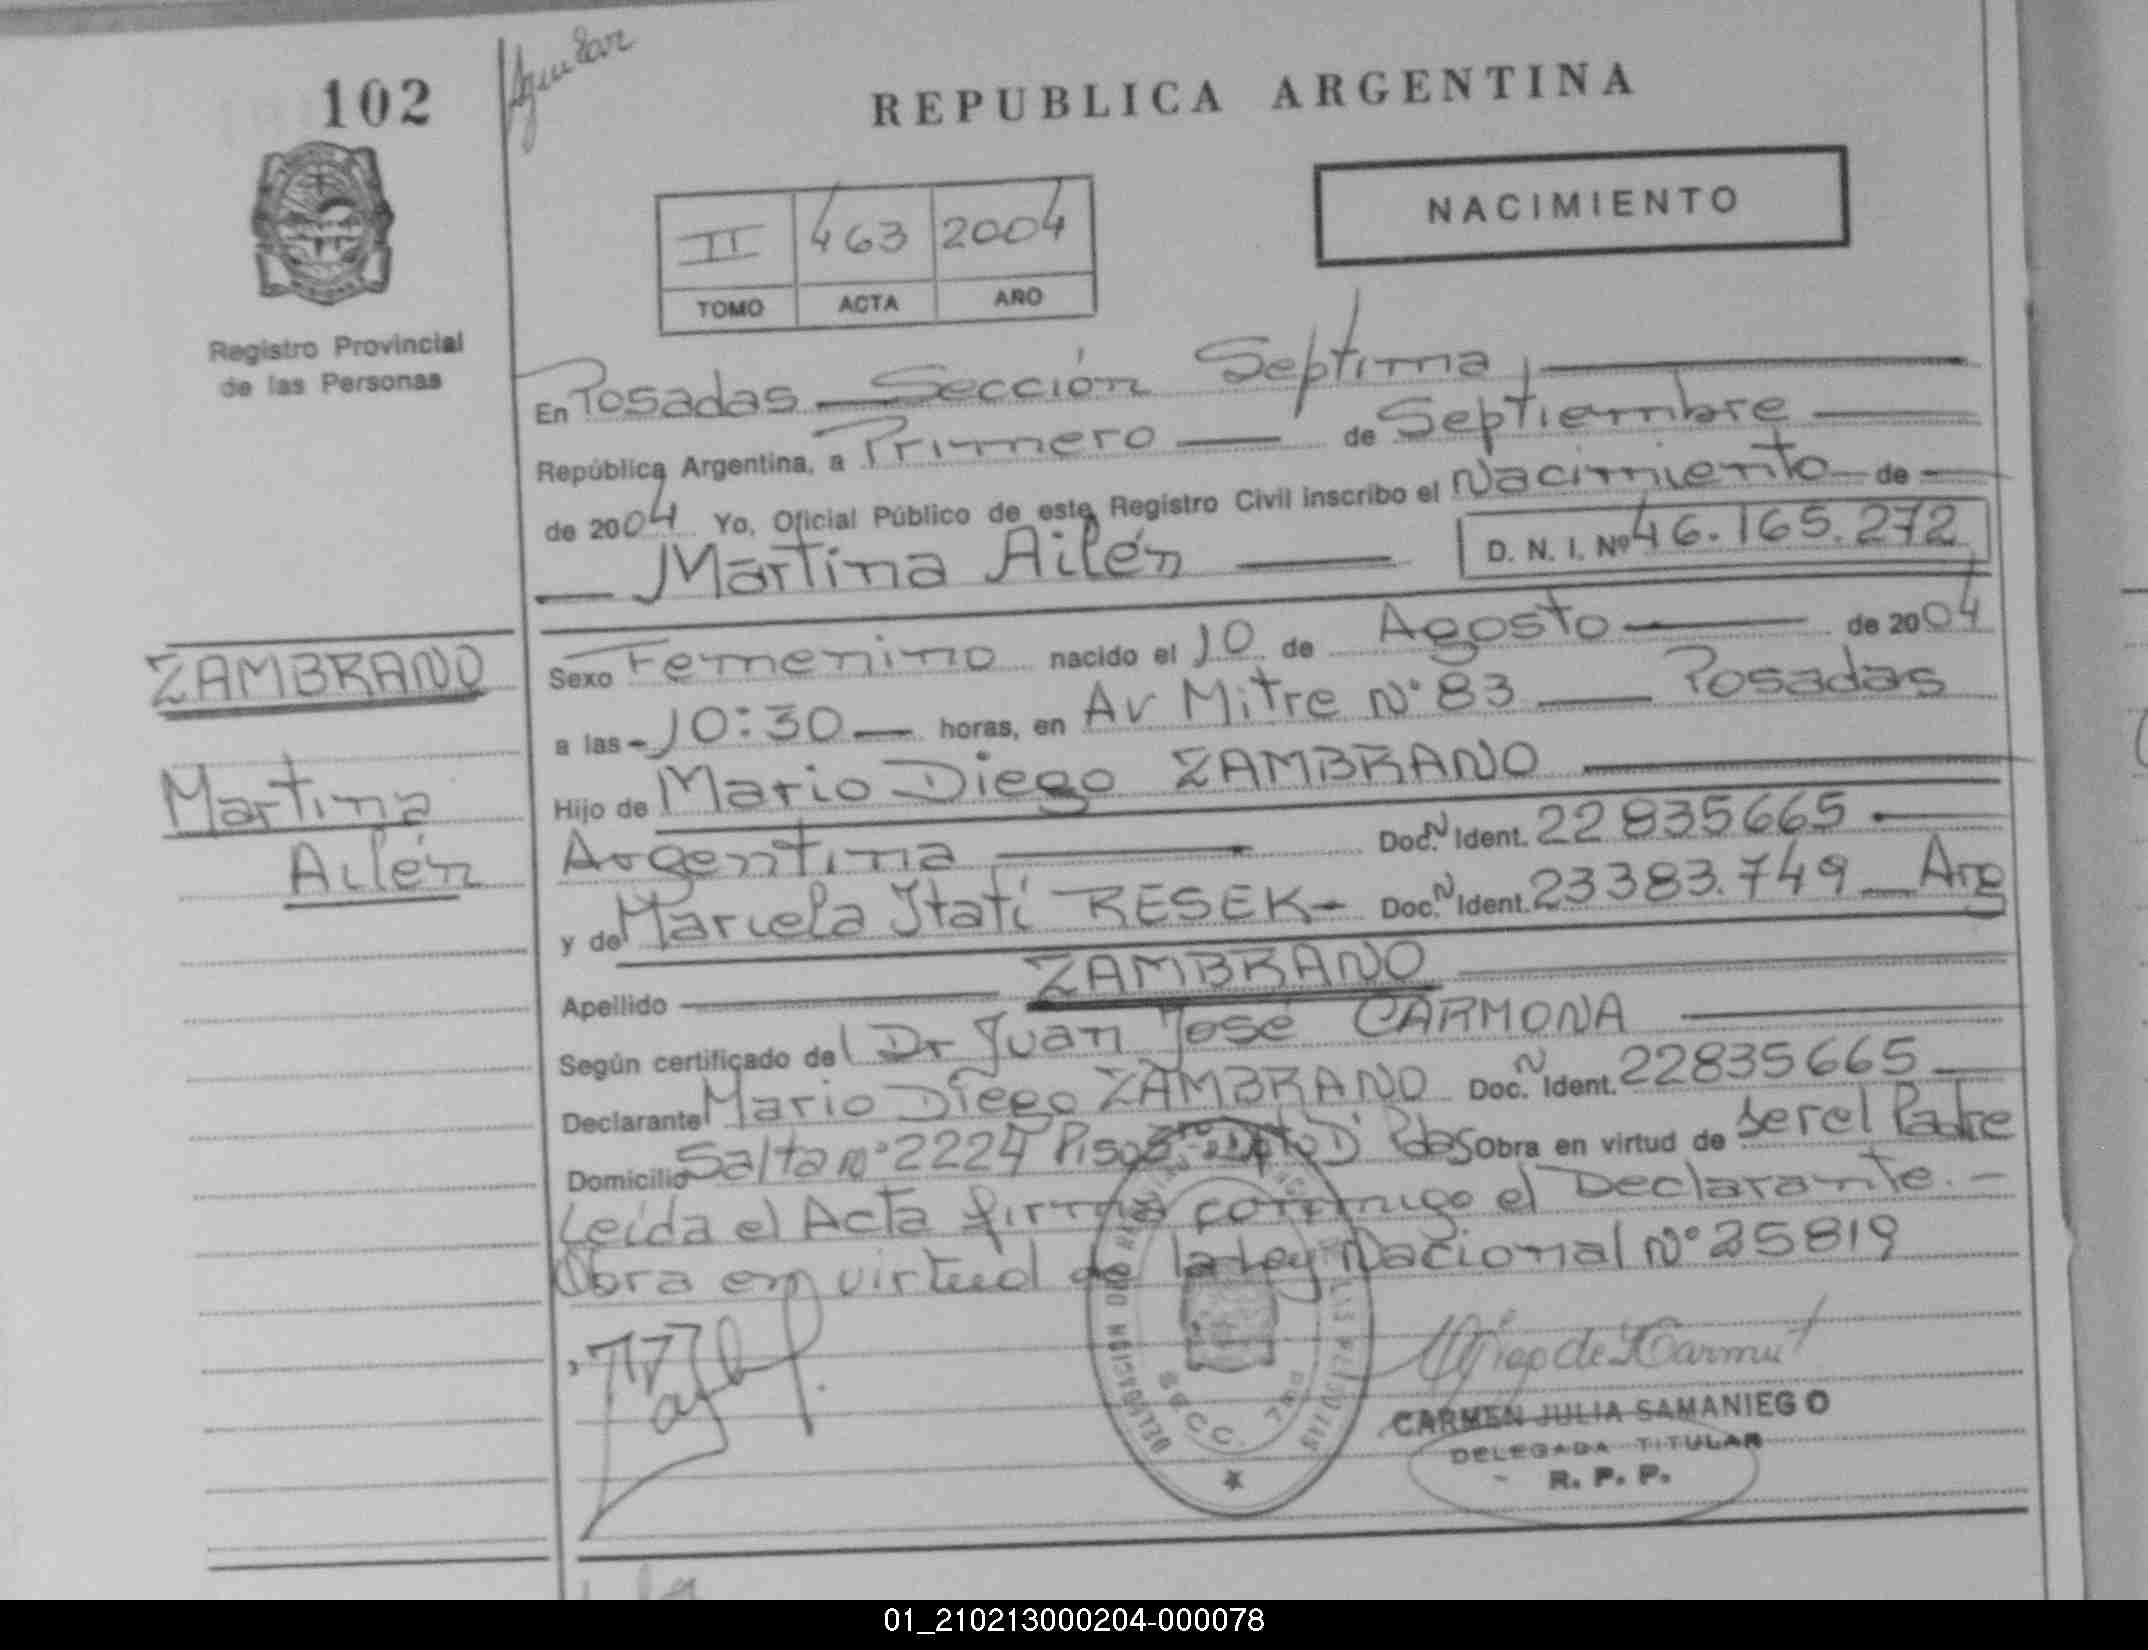 102
Aguilar
REPUBLICA ARGENTINA
NACIMIENTO
II 463 2004
TOMO ACTA AÑO
Registro Provincial
de las Personas
En Posadas — Sección Septima
República Argentina, a Primero — de Septiembre —
de 2004 Yo, Oficial Público de este Registro Civil inscribo el Nacimiento — de —
— Martina Ailén — D. N. I. Nº 46.165.272
ZAMBRANO
Martina
Ailén
Sexo Femenino nacido el 10 de Agosto — de 2004
a las - 10:30 — horas, en Av Mitre Nº 83 — Posadas
Hijo de Mario Diego ZAMBRANO —
Argentina — Doc. N Ident. 22835665 —
y de Marcela Itatí RESEK - Doc. N Ident. 23383.749 — Arg
Apellido — ZAMBRANO —
Según certificado del Dr Juan José CARMONA —
Declarante Mario Diego ZAMBRANO Doc. N Ident. 22835665 —
Domicilio Salta nº 2224 Piso Dpto D' Pdas Obra en virtud de ser el Padre
Leída el Acta firma conmigo el Declarante. -
Obra en virtud de la Ley Nacional Nº 25819
SECC. 7
CARMEN JULIA SAMANIEGO
DELEGADA TITULAR
R. P. P.
01_210213000204-000078